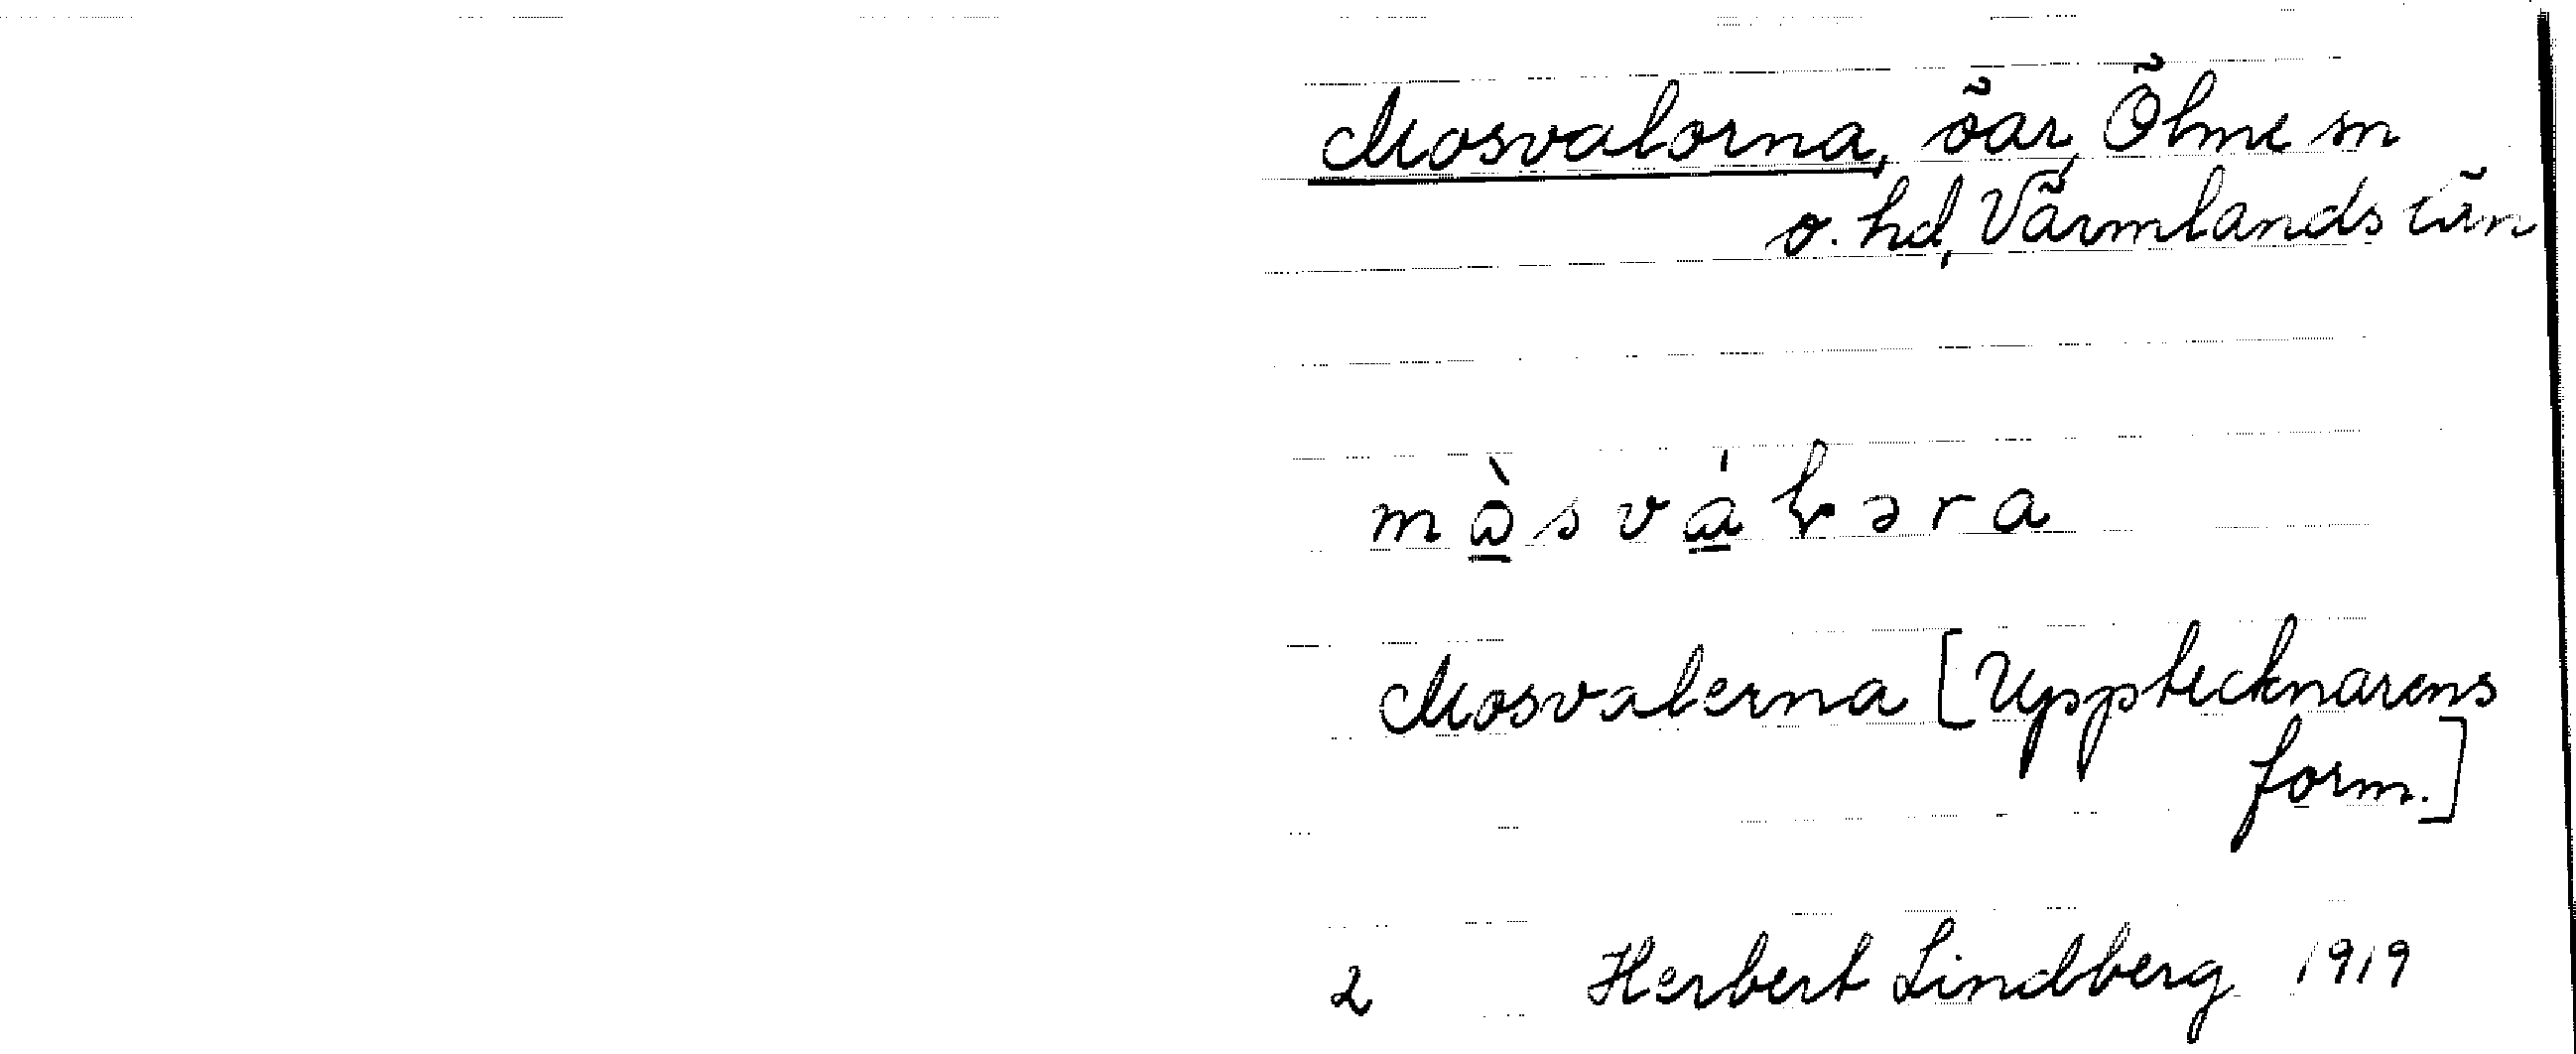 Mosvalorna, öar, Ölme sn
o. hd, Värmlands län
Mosvalerna [Upptecknarens
form.]
2 Herbert Lindberg 1919